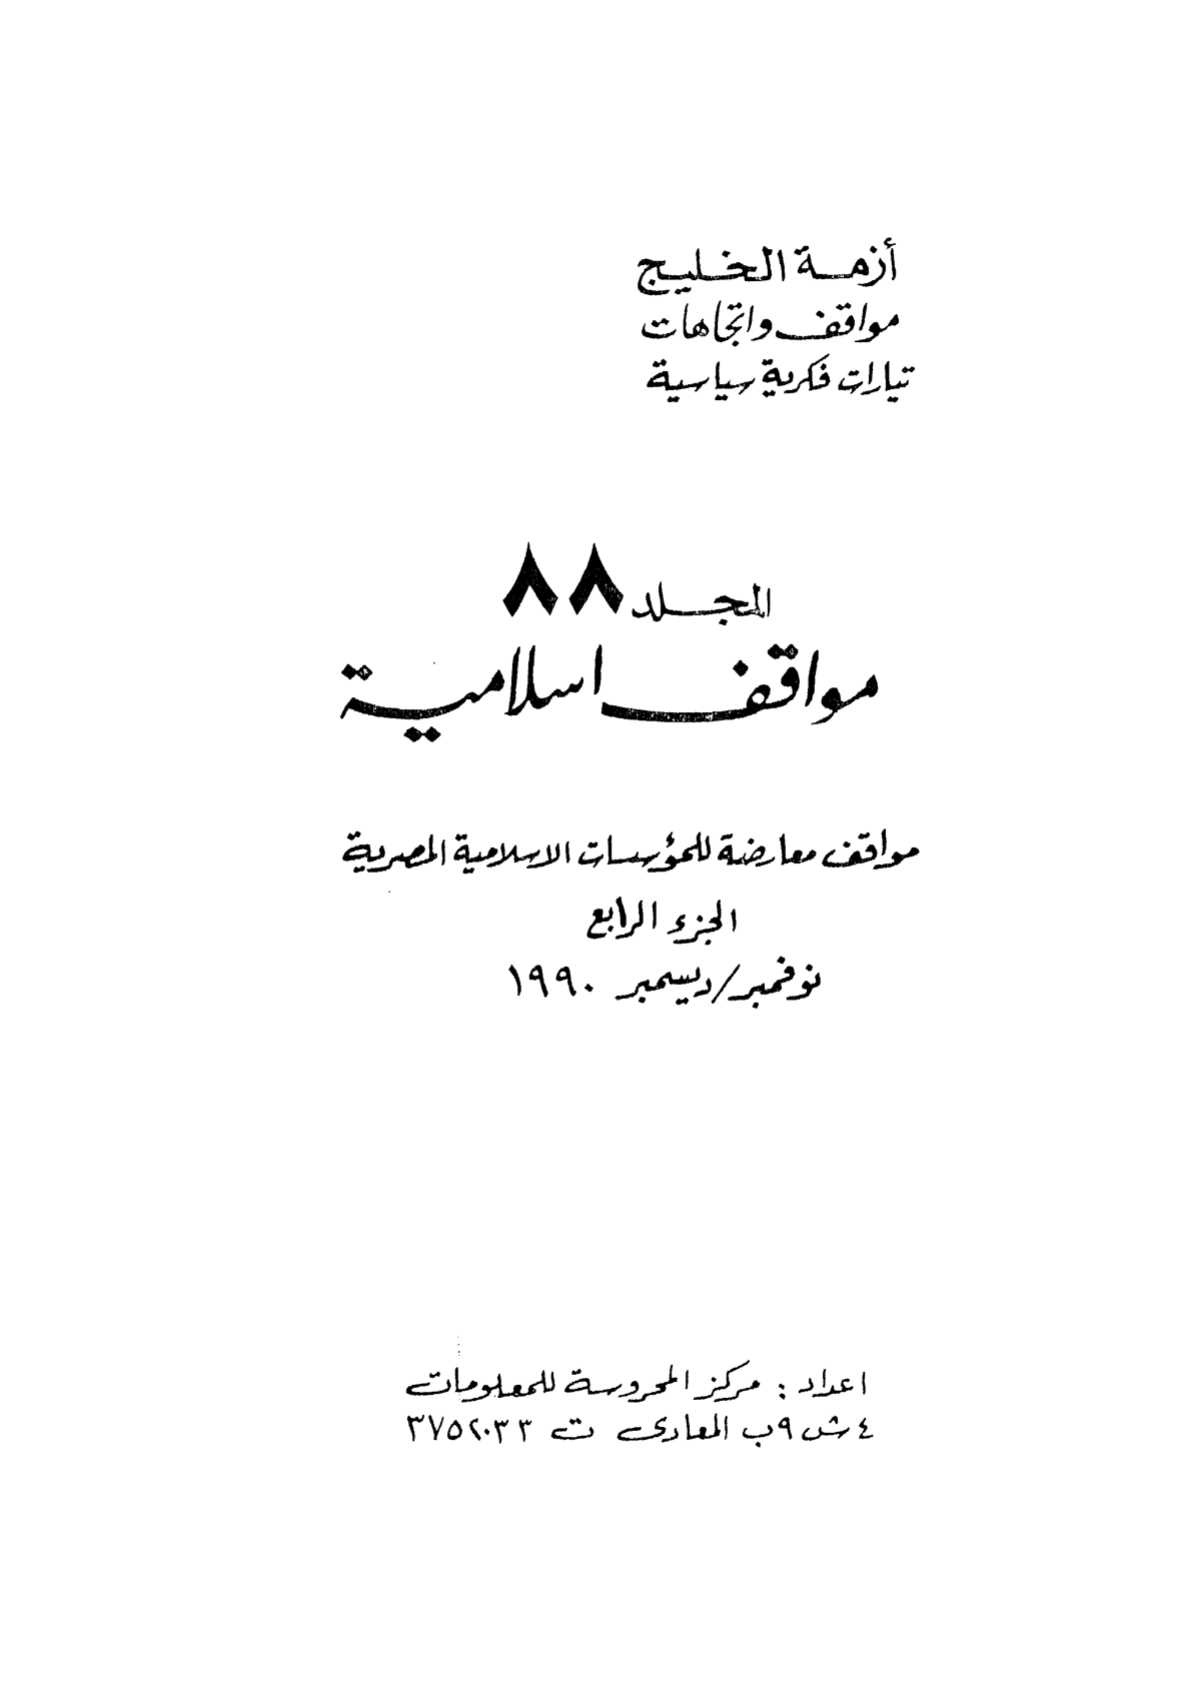 أزمة الخليج
مواقف واتجاهات
تيارات فكرية سياسية
المجلد ٨٨
مواقف اسلامية
مواقف معارضة للمؤسسات الاسلامية المصرية
الجزء الرابع
نوفمبر/ديسمبر ١٩٩٠
اعداد : مركز المحروسة للمعلومات
٤ ش ٩ب المعادى ت ٣٧٥٢٠٣٣